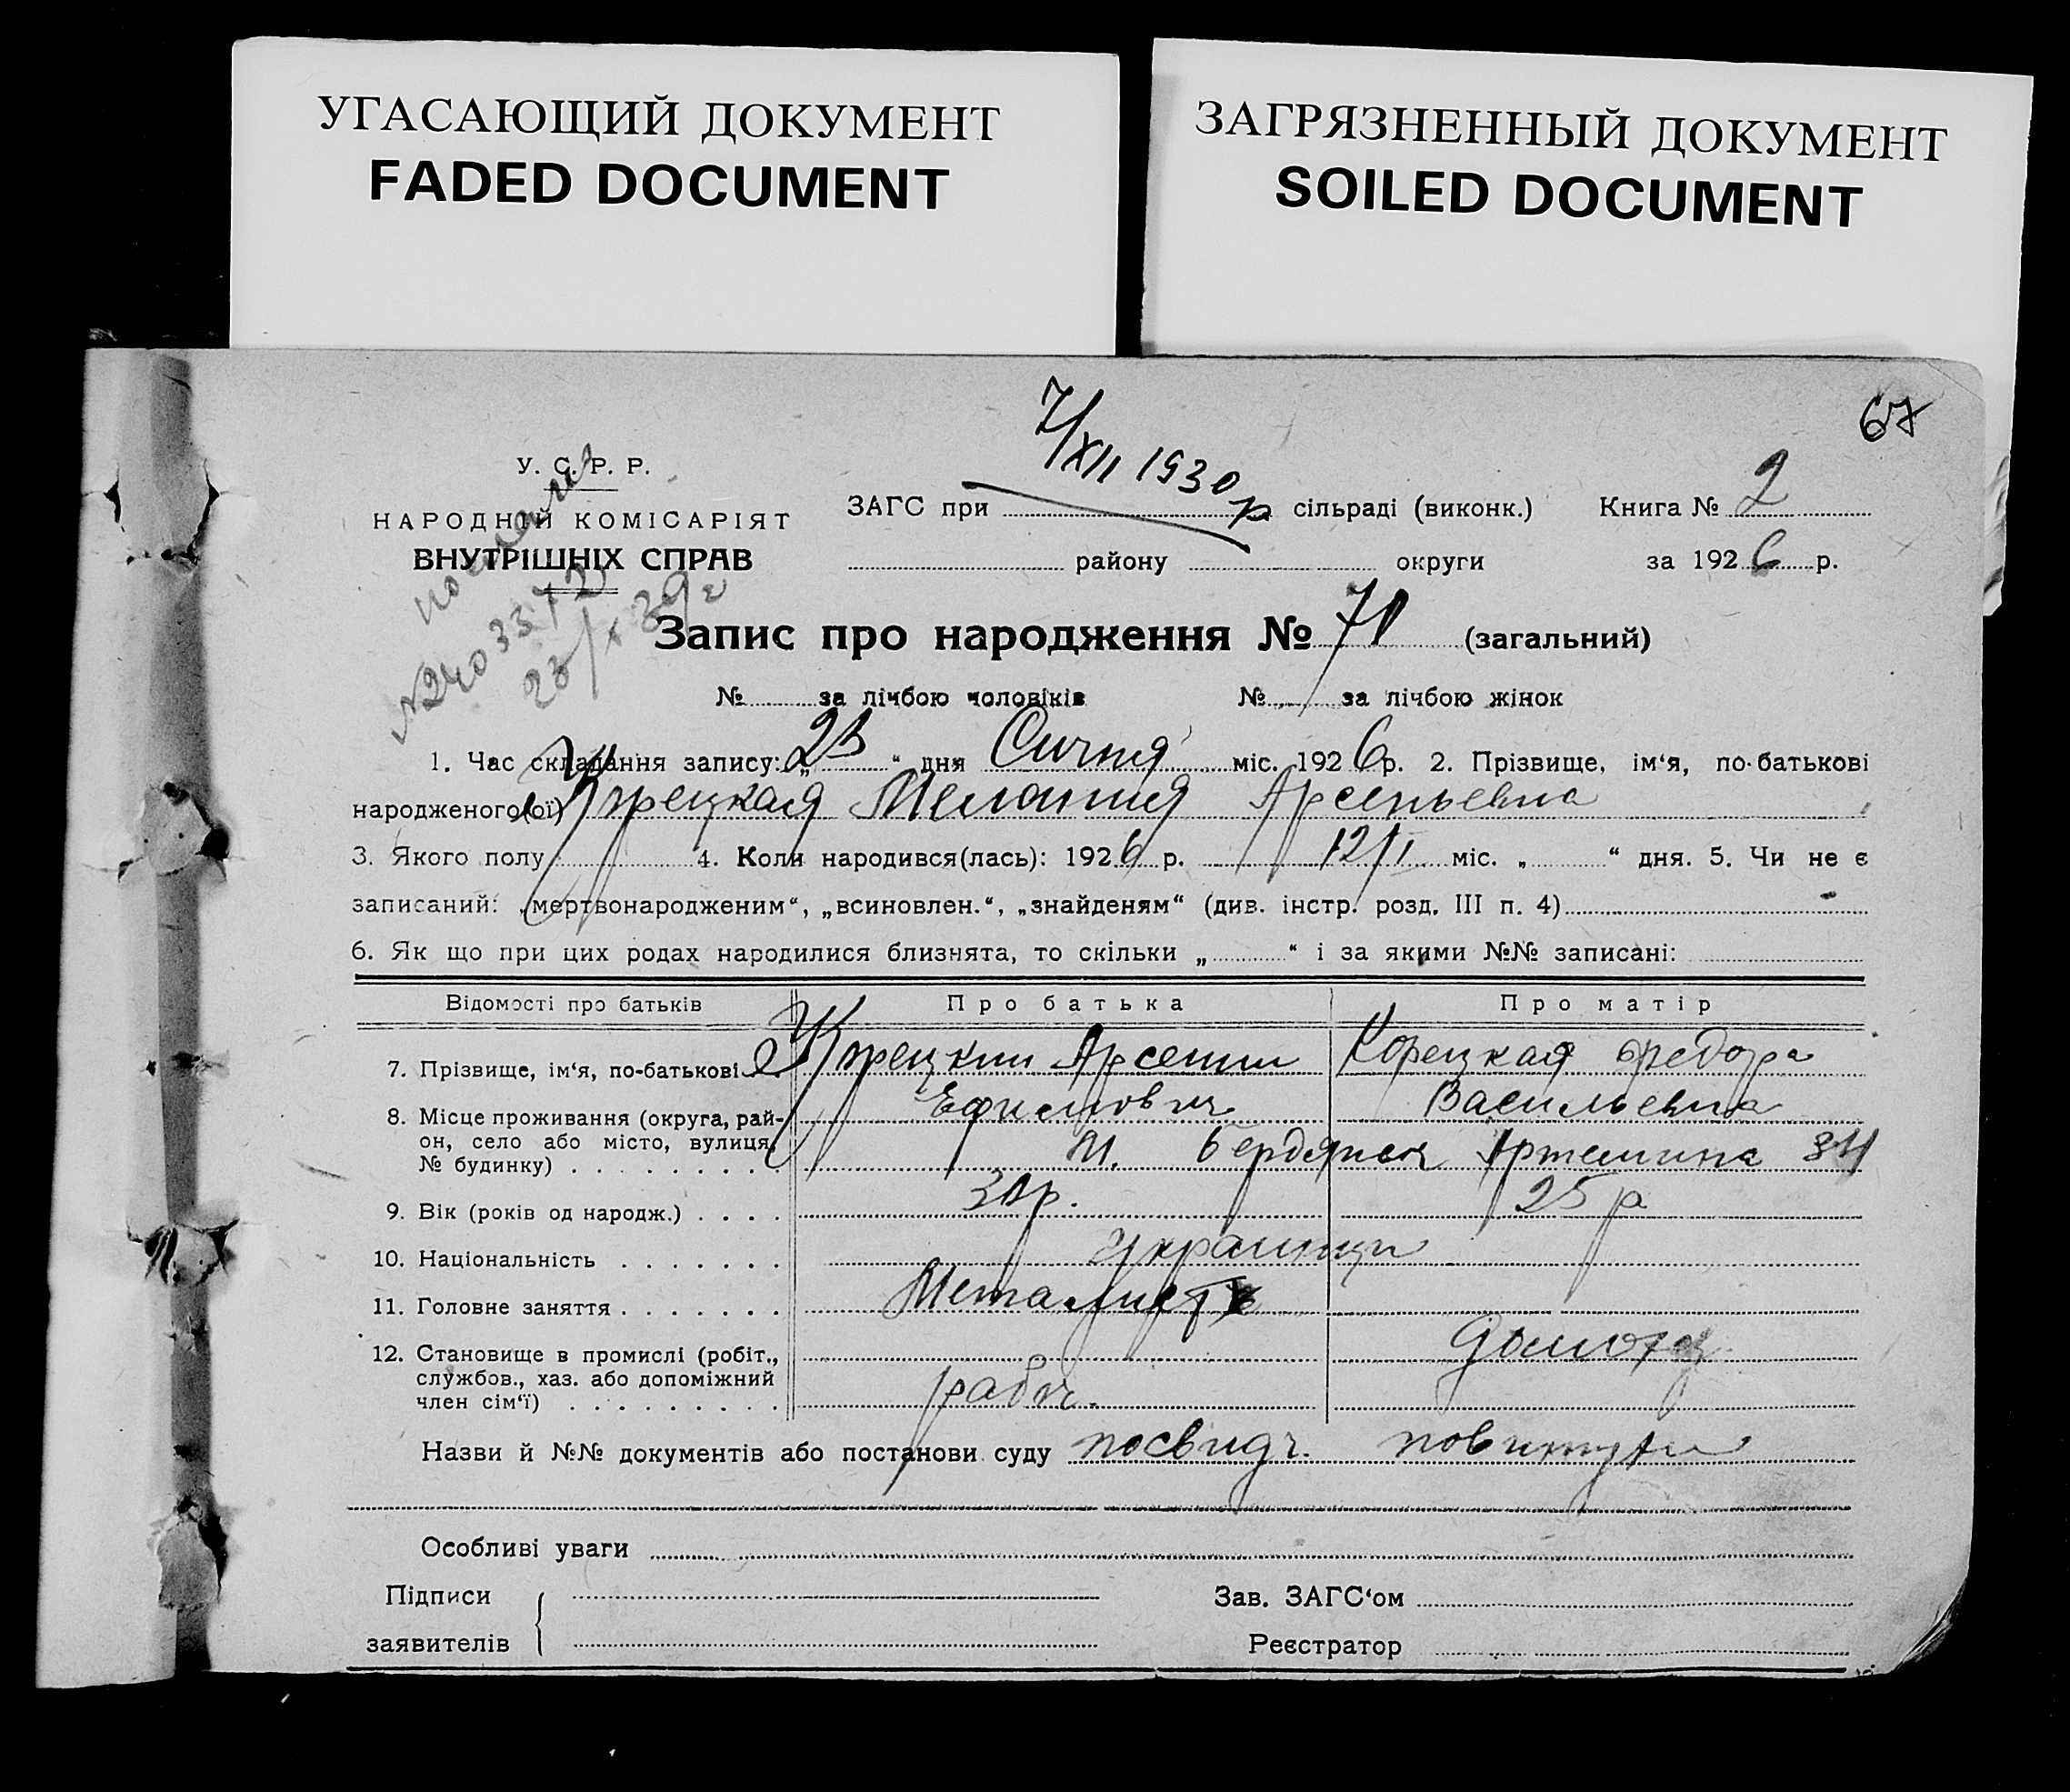 УГАСАЮЩИЙ ДОКУМЕНТ
FADED DOCUMENT
ЗАГРЯЗНЕННЫЙ ДОКУМЕНТ
SOILED DOCUMENT
67
7/XII 1930 р
У. С. Р. Р.
НАРОДНІЙ КОМІСАРІЯТ
ВНУТРІШНІХ СПРАВ
ЗАГС при сільраді (виконк.) Книга № 2
району округи за 1926 р.
Запис про народження № 71 (загальний)
№ за лічбою чоловіків № за лічбою жінок
1. Час складання запису: „23“ дня Січня міс. 1926 р. 2. Прізвище, ім‘я, по-батькові
народженого(ої) Корецкая Мелания Арсеньевна
3. Якого полу 4. Коли народився(лась): 1926 р. 12/I міс. „ “ дня. 5. Чи не є
записаний: „мертвонародженим“, „всиновлен.“, „знайденям“ (див. інстр. розд. III п. 4)
6. Як що при цих родах народилися близнята, то скільки „ “ і за якими №№ записані:
Відомості про батьків Про батька Про матір
7. Прізвище, ім‘я, по-батькові Корецкии Арсении Корецкая Федора
Ефимович Васильевна
8. Місце проживання (округа, рай-
он, село або місто, вулиця,
№ будинку) М. Бердянск Артемина 84
9. Вік (років од народж.) 30 р. 25 р
10. Національність Украинци
11. Головне заняття Металист
12. Становище в промислі (робіт.,
службов., хаз. або допоміжний
член сім‘ї) рабоч.
Назви й №№ документів або постанови суду посвидч. повитухи
Особливі уваги
Підписи
заявителів
Зав. ЗАГС‘ом
Реєстратор